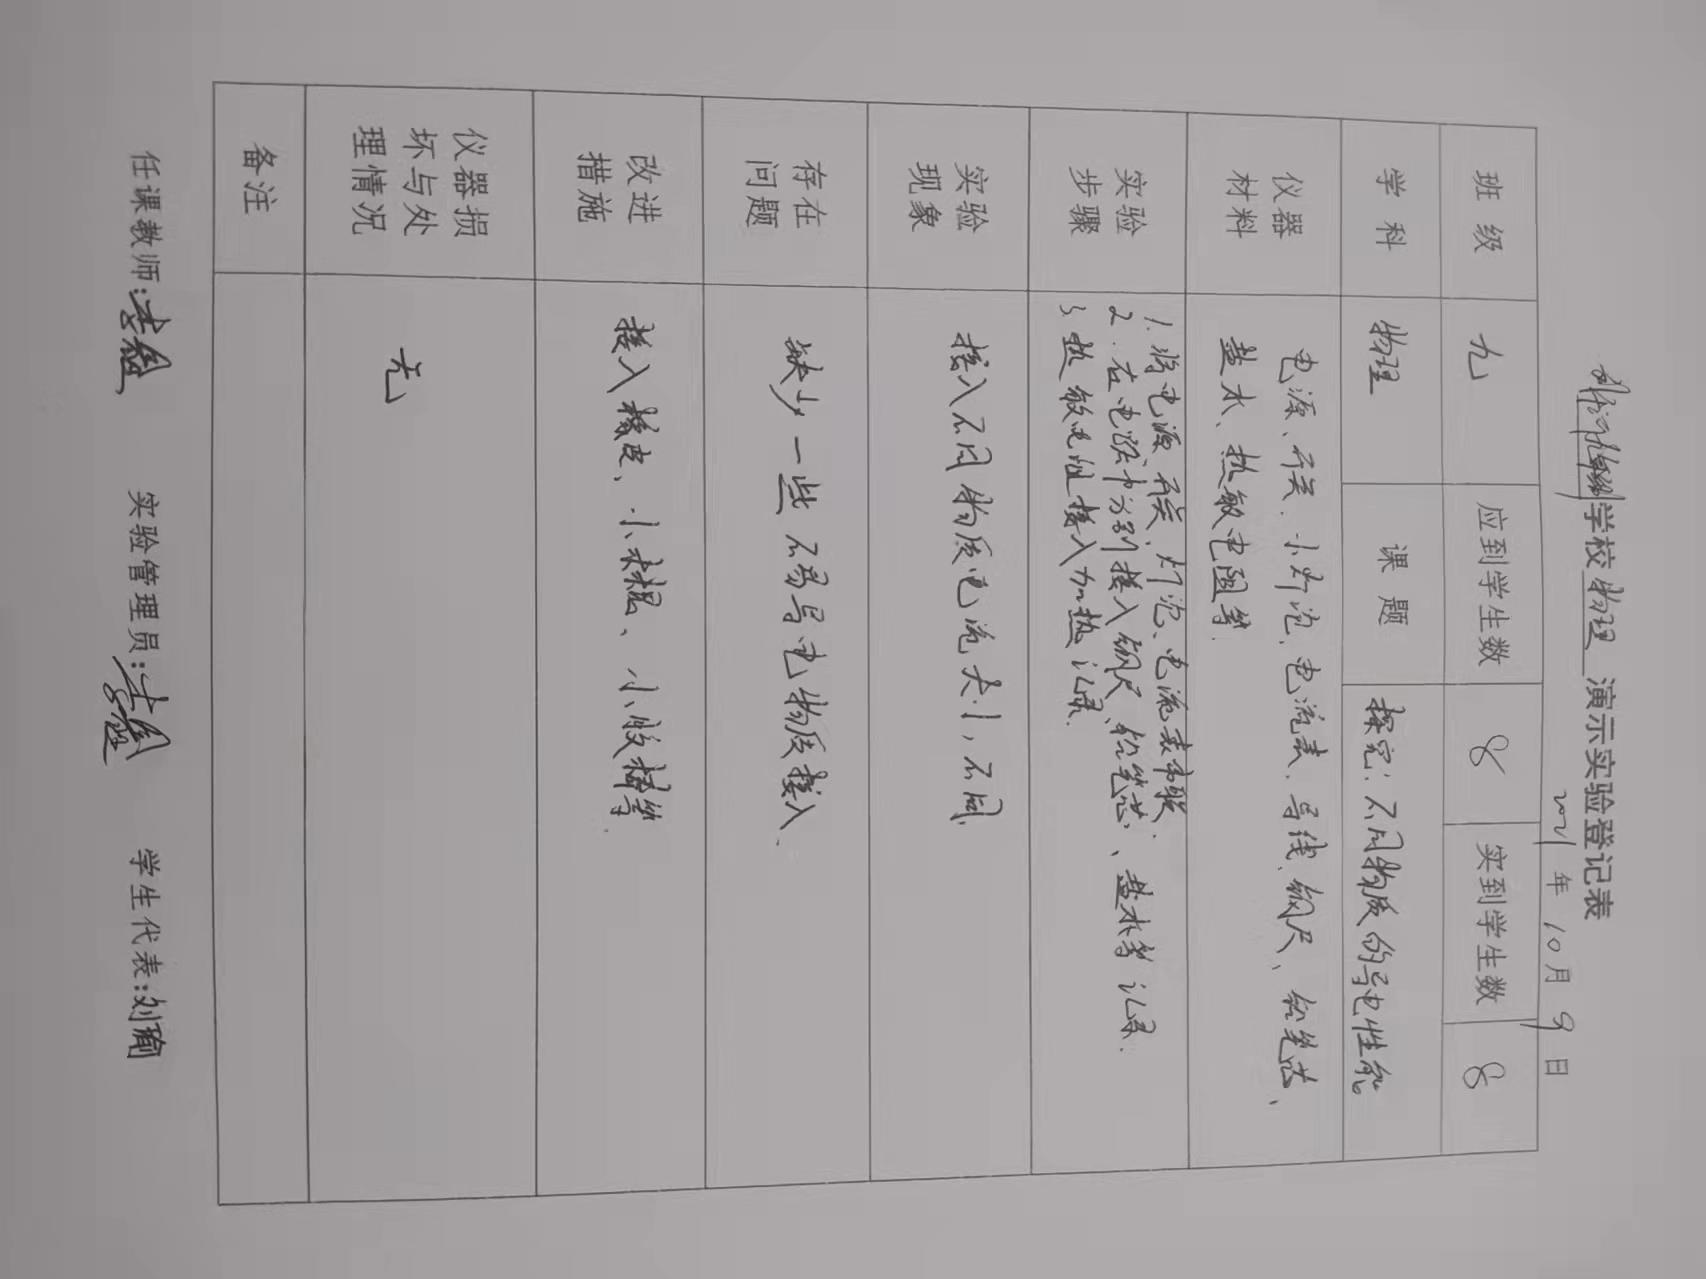 学校物理演示实验登记表
2021年10月9日
班级 九 应到学生数 8 实到学生数 8
学科 物理 课题 探究:不同物质的导电性能
仪器材料 电源、开关、小灯泡、电流表、导线、钢尺、铅笔芯、
盐水、热敏电阻等.
实验步骤 1.将电源、开关、灯泡、电流表串联.
2.在电路中分别接入钢尺、铅笔芯、盐水等 记录.
3 热敏电阻接入加热 记录.
实验现象 接入不同物质电流大小不同.
存在问题 缺少一些不易导电物质接入.
改进措施 接入橡皮、小木棍、小胶棒等.
仪器损坏与处理情况 无
备注
任课教师: 实验管理员: 学生代表:刘瑜